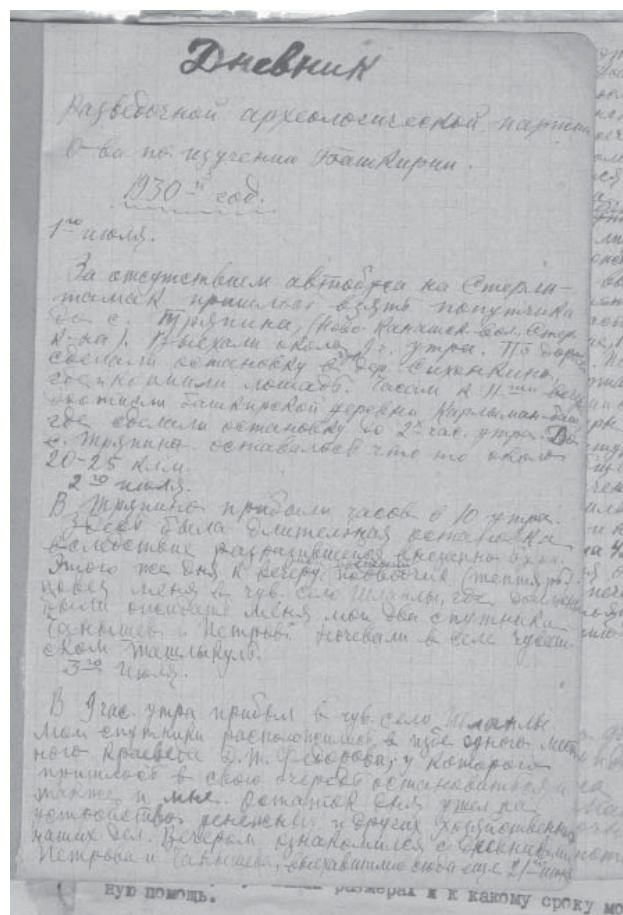 Дневник
Разведочной археологической партии
О-ва по изучению Башкирии.
1930-й год.
1го июля.
За отсутствием автобуса на Стерли-
тамак пришлось взять попутчика
до с. Тряпина, (Ново-
Выехали около 9 ч. утра. По дороге
сделали остановку в дер.
где кормили лошадь. Часам к 11ти вечера
достигли башкирской деревни
где сделали остановку до 2х час. утра. До
с. Тряпино оставалось что то около
20-25 клм.
2го июля.
В Тряпино прибыли часов в 10 утра.
Здесь была длительная остановка
вследствие разразившегося внезапно
Этого же дня к вечеру подводчик
повез меня в чув. село Шланлы, где должны
были ожидать меня мои два спутника
Танышев и Петров. Ночевали в селе чуваш-
ском Ташлыкуль.
3го июля.
В 9 час. утра прибыл в чув. село Шланлы
Мои спутники расположились в избе одного мест-
ного краеведа Федорова, у которого
пришлось в свою очередь остановиться
также и мне. Остаток дня ушел на
устройство денежных и других хозяйственных
наших дел. Вечером ознакомился с
Петрова и Танышева,
ную помощь.
размерах и к какому сроку мо